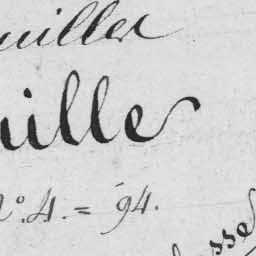 uiller
uille
№. 4. = 94.
sse